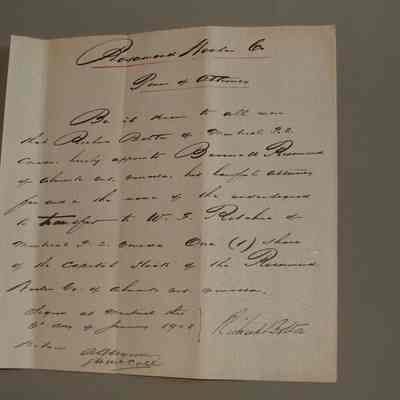 Rosamond Woolen Co
Power of Attorney
Be it known to all men
that Richard Bolton of Montreal P.Q.
Canada hereby appoints Bennett Rosamond
of Almonte Ont. Canada, his lawful attorney
for and in the name of the undersigned
to transfer to W. J. Ritchie of
Montreal P.Q. Canada One (1) Share
of the Capital Stock of the Rosamond
Woolen Co. of Almonte Ont. Canada.
Signed at Montreal this
6th day of January
Richard Bolton